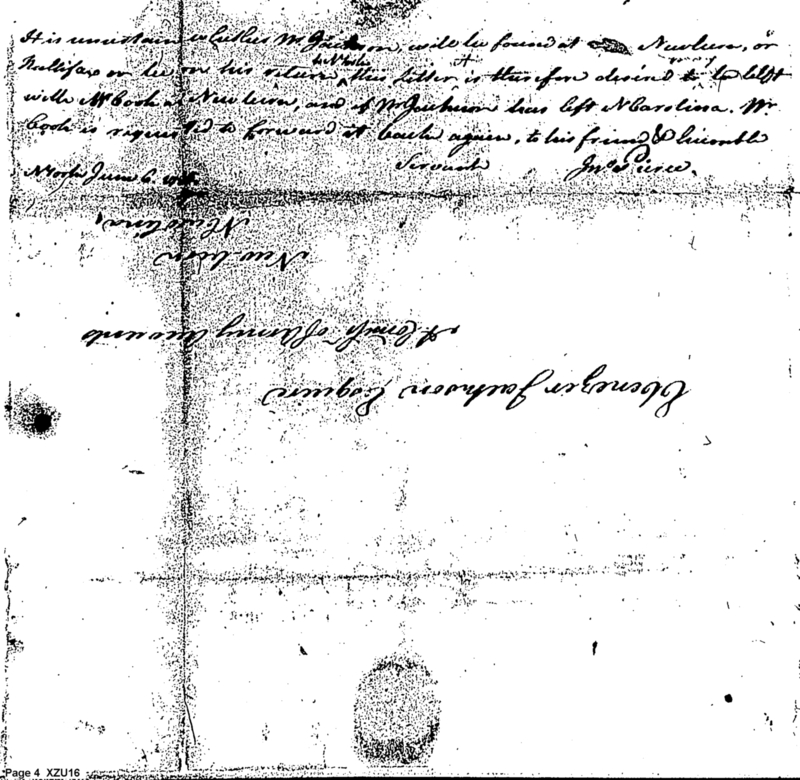 It is uncertain whether Mr Jackson will be found at Newbern, or
Hallifax or be on his return to NYork, this letter it is therefore desired may be left
with Mr Cook at Newbern, and if Mr Jackson has left NCarolina. Mr
Cook is requested to forward it back again, to his friend & humble
Servant Jno Pierce.
NYork June 6.
Ebenezer Jackson Esquire
of Army Accounts
New bern
Page 4 XZU16